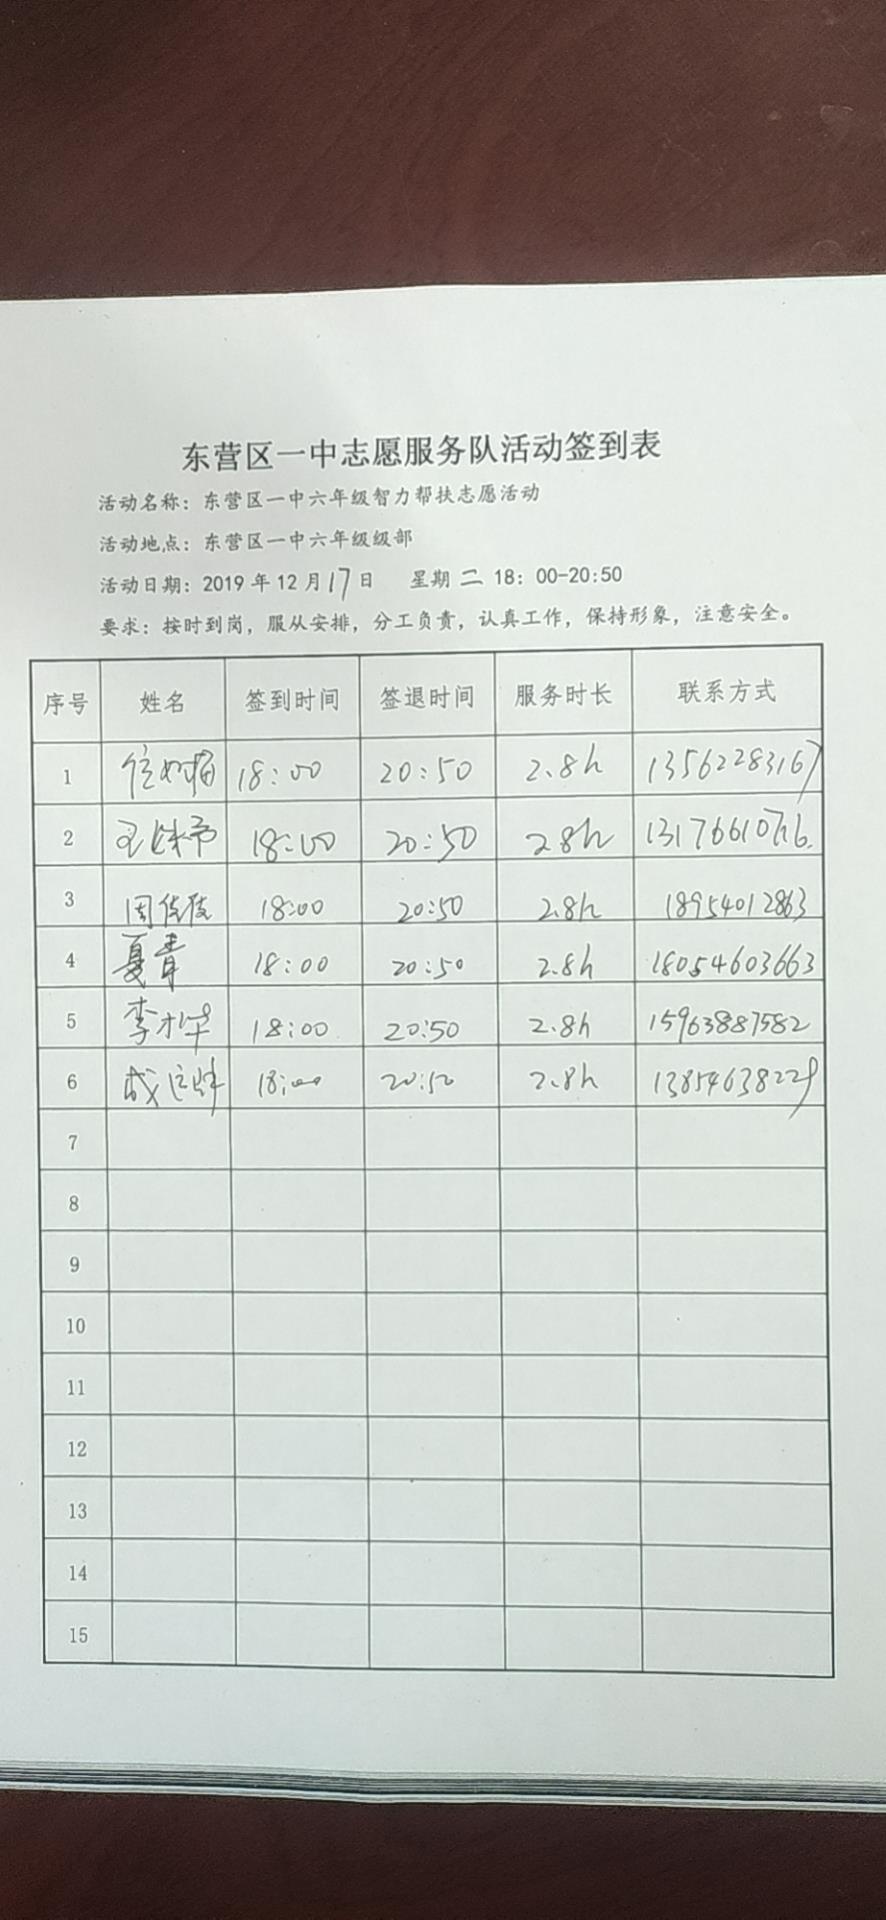 东营区一中志愿服务队活动签到表
活动名称：东营区一中六年级智力帮扶志愿活动
活动地点：东营区一中六年级级部
活动日期：2019年12月17日 星期二 18：00-20:50
要求：按时到岗，服从安排，分工负责，认真工作，保持形象，注意安全。
序号 姓名 签到时间 签退时间 服务时长 联系方式
1 18:00 20:50 2.8h 13562283167
2 18:00 20:50 2.8h
3 18:00 20:50 2.8h 18954012863
4 夏青 18:00 20:50 2.8h 18054603663
5 李才华 18:00 20:50 2.8h 15963887582
6 18:00 20:50 2.8h 13854638229
7
8
9
10
11
12
13
14
15